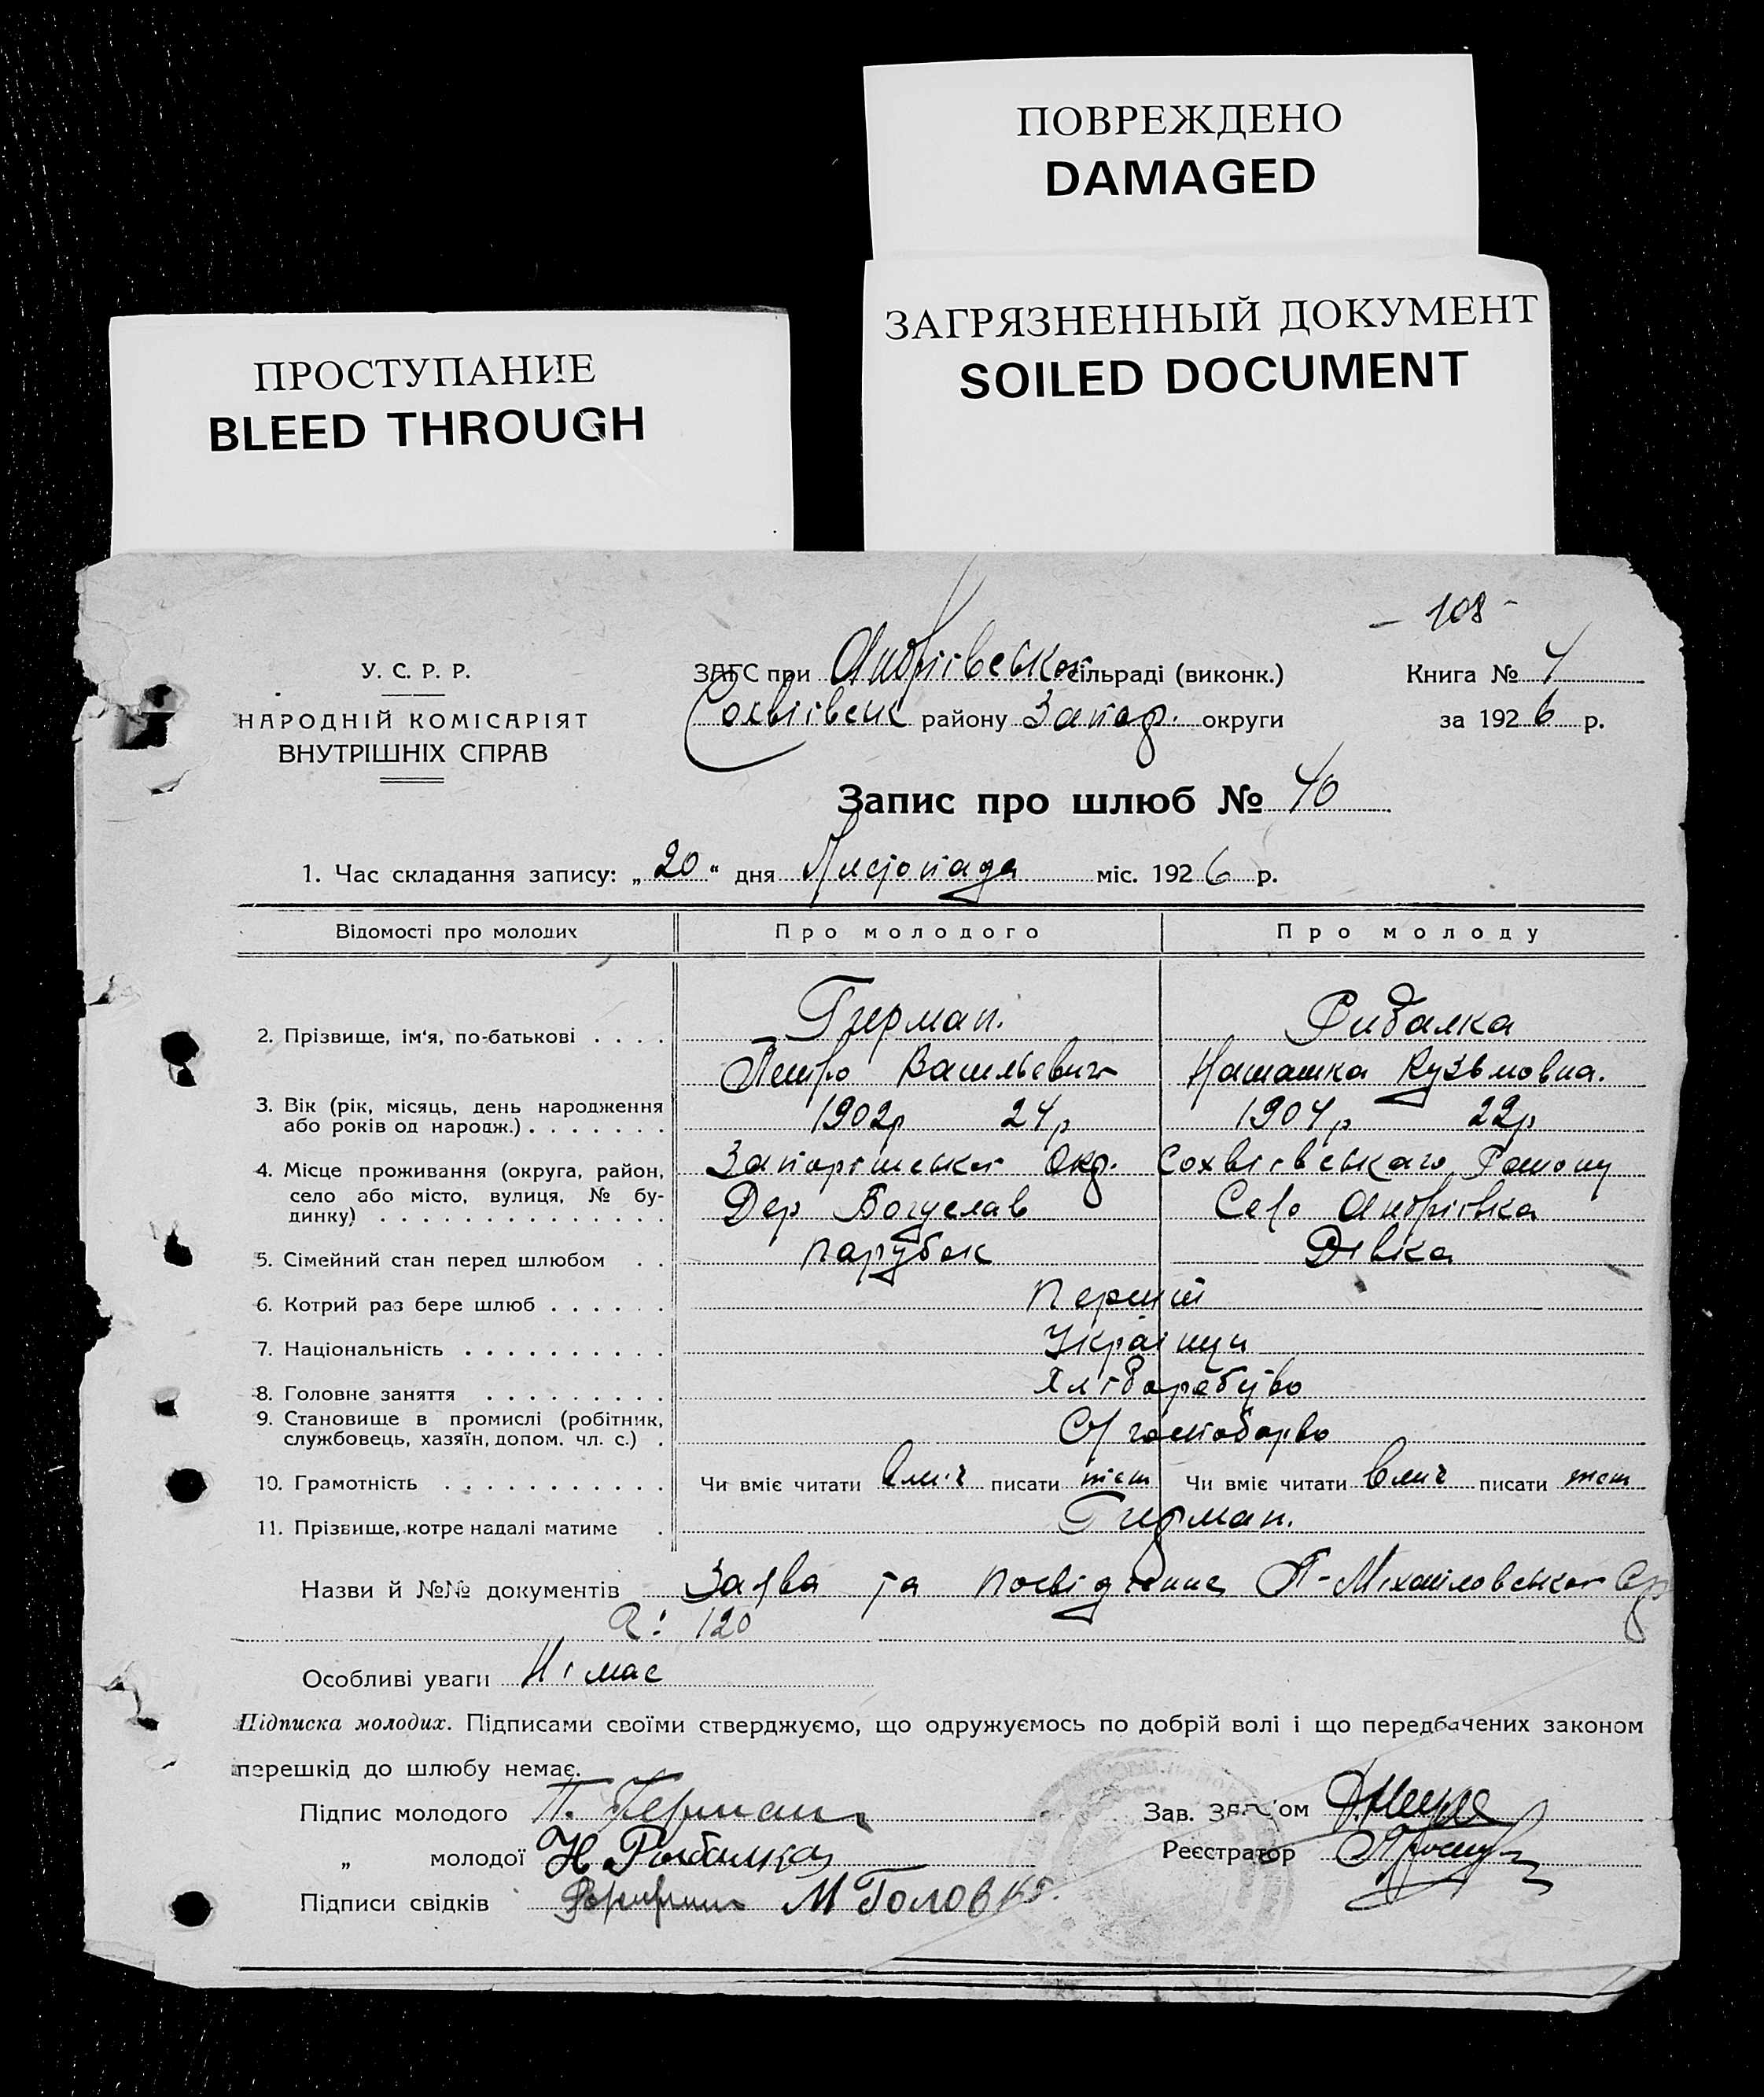 ПОВРЕЖДЕНО
DAMAGED
ЗАГРЯЗНЕННЫЙ ДОКУМЕНТ
SOILED DOCUMENT
ПРОСТУПАНИЕ
BLEED THROUGH
- 108 -
У. С. Р. Р.
НАРОДНІЙ КОМІСАРІЯТ
ВНУТРІШНІХ СПРАВ
ЗАГС при Андріівській сільраді (виконк.)
Сохвіівськ району Запор. округи
Книга № 1
за 1926 р.
Запис про шлюб № 40
1. Час складання запису: „20“ дня Листопада міс. 1926 р.
Відомості про молодих Про молодого Про молоду
2. Прізвище, ім'я, по-батькові . . . . Герман. Рибалка
Петро Васильевич Наташка Кузьмовна.
3. Вік (рік, місяць, день народження
або років од народж.) . . . . . . . 1902р 24р 1904р 22р
4. Місце проживання (округа, район, Запоріжської Окр. Сохвіівського Району
село або місто, вулиця, № бу-
динку) . . . . . . . . . . . . . . Дер Богуслав Село Андріівка
5. Сімейний стан перед шлюбом . . парубок Дівка
6. Котрий раз бере шлюб . . . . . . Перший
7. Національність . . . . . . . . . . Українци
8. Головне заняття . . . . . . . . . Хліборобство
9. Становище в промислі (робітник,
службовець, хазяїн, допом. чл. с.) .
10. Грамотність . . . . . . . . . . . Чи вміє читати вміє писати теж Чи вміє читати вміє писати теж
11. Прізвище, котре надалі матиме . Герман.
Назви й №№ документів Заява та посвідчення П-Михайловської С/р
120
Особливі уваги Німає
Підписка молодих. Підписами своїми стверджуємо, що одружуємось по добрій волі і що передбачених законом
перешкід до шлюбу немає.
Підпис молодого П. Герман
„ молодої Н Рыбалка
Підписи свідків М Головко
Зав. ЗАГС'ом
Реєстратор